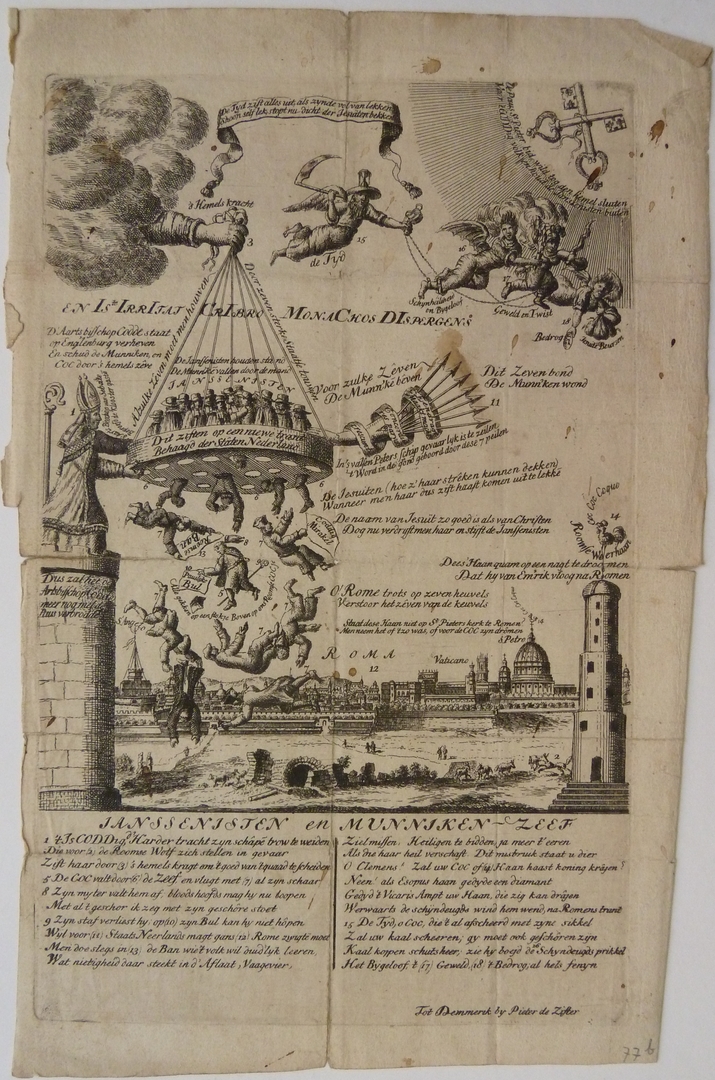 De Tyd zift alles uit, als zynde vol van lekken
Schoon zelf lek, stopt nu dicht der Jesuiten bekken
's Hemels kracht
3
15
de Tyd
16
Schynheiligh
en Bygeloof
17
Geweld en Twist
18
Bedrog
EN IS IRRITAT CRIBRO MONACKOS DISPERGENS
D'Aartsbisschop Codde staat
op Englenburg verheven
En schud de Munniken, en
COC door 's hemels zéve
De Janssenisten houden stand
De Munniken vallen door de mand
JANSSENISTEN
A'zulke Zéven moet men houwen
Door zeven sterke Staatse touwen
Voor zulke Zeven
De Munniken béven
Dit Zeven bond
De Munn'ken wond
11
1
Dit ziften op een niewe trant
Behaagd der Staten Nederland
In's vallen Peters schip gevaarlyk is te zeilen
't Word in de grond geboord door dese 7 peilen
De Jesuiten (hoe z'haar stréken kunnen dekken)
Wanneer men haar dus zift haast komen uit te lekke
De naam van Jesuit zo goed is als van Christen
Dog nu verdryft men haar en stift de Janssenisten
14
Roomse Weerhaan
Dees Haan quam op een nagt te droomen
Dat hy van Em'rik vloog na Romen
13
Bul
5
O Rome trots op zeven heuvels
Verstoor het zéven van de keuvels
Staat dese Haan niet op St. Pieters kerk te Romen
Men neem het of t'zo was, of voor de COC zyn dromen
S. Petro
ROMA
12
Vaticano
Dus zat het de
Artsbisschop Kodde
meer nog met de
Paus verbrodde
JANSSENISTEN en MUNNIKEN-ZEEF
1 't Is CODD ig d'Harder tracht zyn schápe trow te weiden
Die voor 2) de Roomse Wolf zich stellen in gevaar
Zift haar door 3) 's hemels kragt om 't goed van 't quaad te scheiden
5 De COC valt door (6) de Zeef en vlugt met (7) al zyn schaar
8 Zyn myter valt hem af. bloodshoofds mag hy nu loopen
Met al 't geschor ik zeg met zyn geschore stoet
9 Zyn staf verliest hy: op (10) zyn Bul kan hy niet hópen
Wyl voor (11) Staats Neerlands magt gans (12) Rome zwigte moet
Men doe slegs in (13) de Ban wie't volk wil duid'lyk leeren,
Wat nietigheid daar steekt in d'Aflaat, Vaagevier,
Ziel missen. Heiligen te bidden, ja meer t'eeren
Als die haar heil verschaft. Dit musbruik staat u dier
O Clemens! Zal uw COC of (14) Haan haast koning kráyen
Neen: als Esopus haan gedye een diamant
Gedyd 't Vicaris Ampt uw Haan, die zig kan dráyen
Werwaarts de schyndeugds wind hem wend, na Romens trant
15 De Tyd, o COC, die't al afscheerd met zync sikkel
Zal uw kaal scheeren; gy moet ook geschóren zyn
Kaal koppen schutsheer, zie hy boeid de 16 Schyndeugds prikkel
Het Bygeloof, 't (17) Geweld, (18) 't Bedrog, al hels fenyn
Tot Demmerik by Pieter de Zifter
77 b